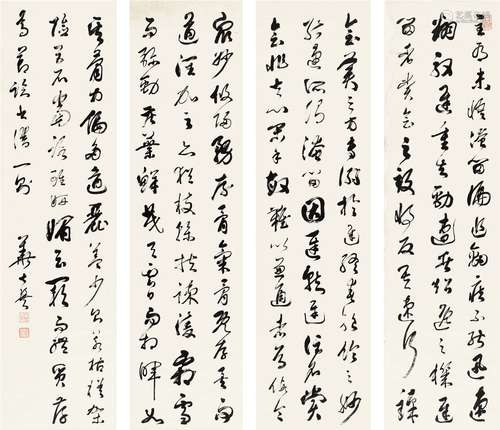 至有未悟淹留偏追勁疾不能迅速
翻效遲重夫勁速者超逸之機遲
留者賞會之致將反其速行臻
會美之方專溺於遲終爽絕倫之妙
能速不速所謂淹留因遲就遲詎名賞
會非其心閑手敏難以兼通者焉假令
眾妙攸歸務存骨氣骨既存矣而
遒潤加之亦猶枝幹扶疏凌霜雪
而彌勁花葉鮮茂與雲日而相暉如
其骨力偏多遒麗蓋少則若枯槎架
險巨石當路雖妍媚云闕而體質存
焉節臨書譜一則